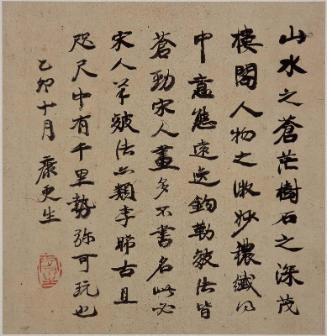 山水之蒼茫樹石之深茂
樓閣人物之微妙穠纖得
中意態遠逸鉤勒皴法皆
蒼勁宋人畫多不書名此必
宋人筆皴法亦類李晞古且
咫尺中有千里勢彌可玩也
乙卯十月 康更生